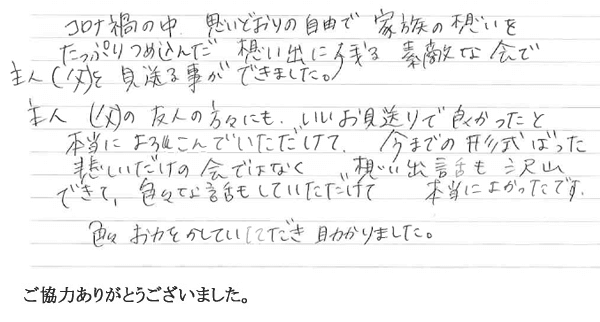 コロナ禍の中 思いどおりの自由で 家族の想いを
たっぷりつめ込んだ 想い出に残る 素敵な会で
主人(父)を見送る事ができました。
主人(父)の友人の方々にも、いいお見送りで良かったと
本当によろこんでいただけて、今までの形式ばった
悲しいだけの会ではなく 想い出話も沢山
できて、色々な話もしていただけて 本当によかったです。
色々お力をかしていただき助かりました。
ご協力ありがとうございました。